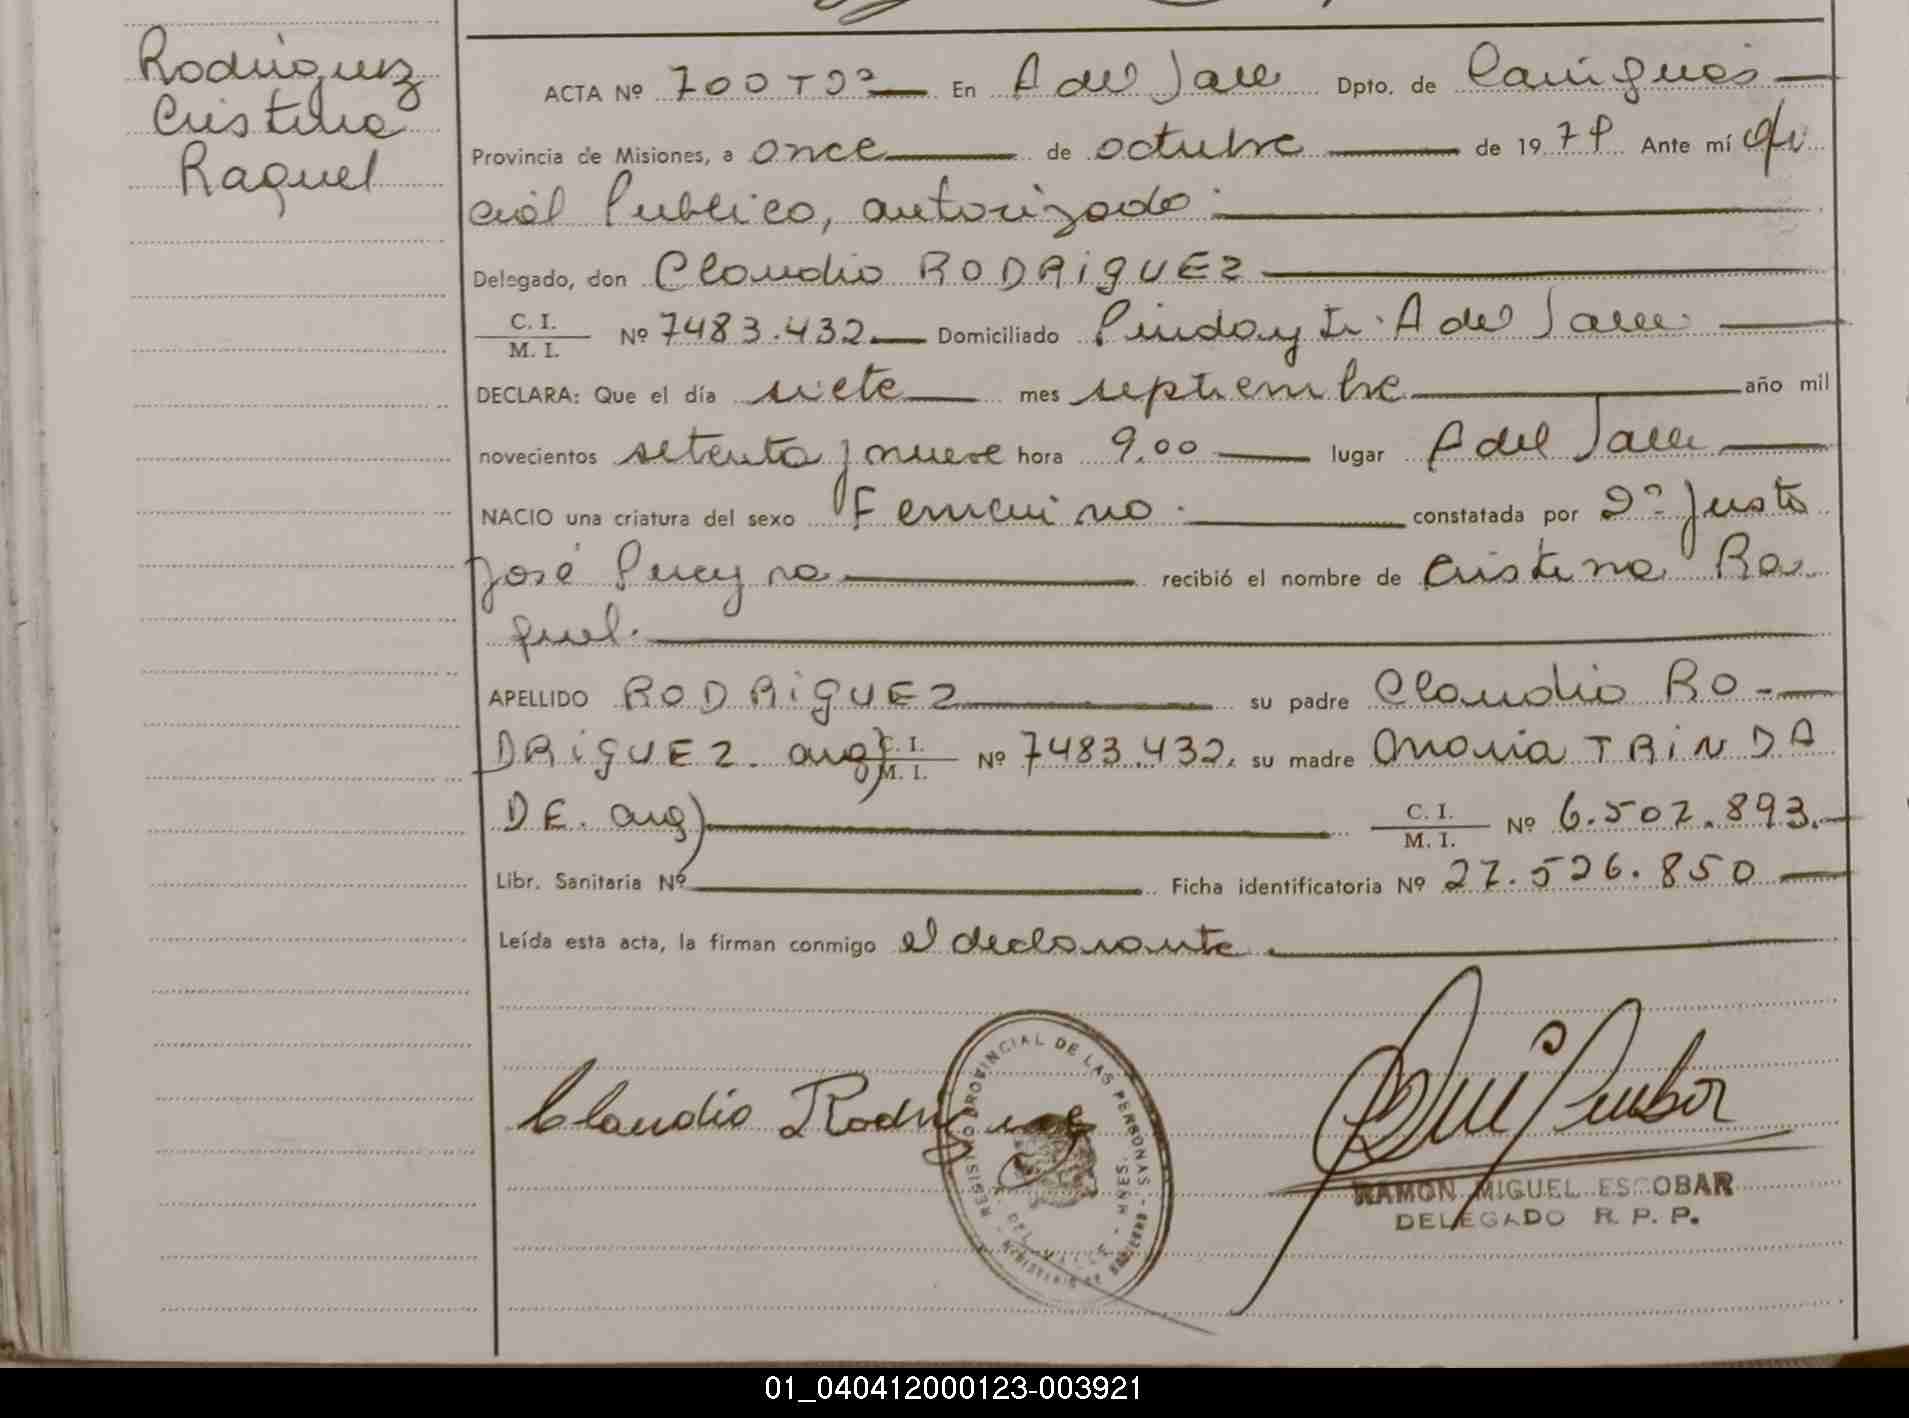 Rodriguez
Cristina
Raquel
ACTA Nº 700 Tº 2º En A del Valle Dpto. de Cainguás
Provincia de Misiones, a once de octubre de 1979 Ante mí ofi
cial Publico, autorizado
Delegado, don Claudio RODRIGUEZ
C. I.
M. I. Nº 7483.432 Domiciliado Pindayti. A del Valle
DECLARA: Que el día siete mes septiembre año mil
novecientos setenta y nueve hora 9,00 lugar A del Valle
NACIO una criatura del sexo Femenino. constatada por Justo
José recibió el nombre de Cristina Ra
quel.
APELLIDO RODRIGUEZ su padre Claudio RO-
DRIGUEZ. arg) C. I.
M. I. Nº 7483.432. su madre Maria TRINDA
DE. arg) C. I.
M. I. Nº 6.502.893.
Libr. Sanitaria Nº Ficha identificatoria Nº 27.526.850
Leída esta acta, la firman conmigo el declarante
Claudio Rodriguez
REGISTRO PROVINCIAL DE LAS PERSONAS
RAMON MIGUEL ESCOBAR
DELEGADO R. P. P.
01_040412000123-003921